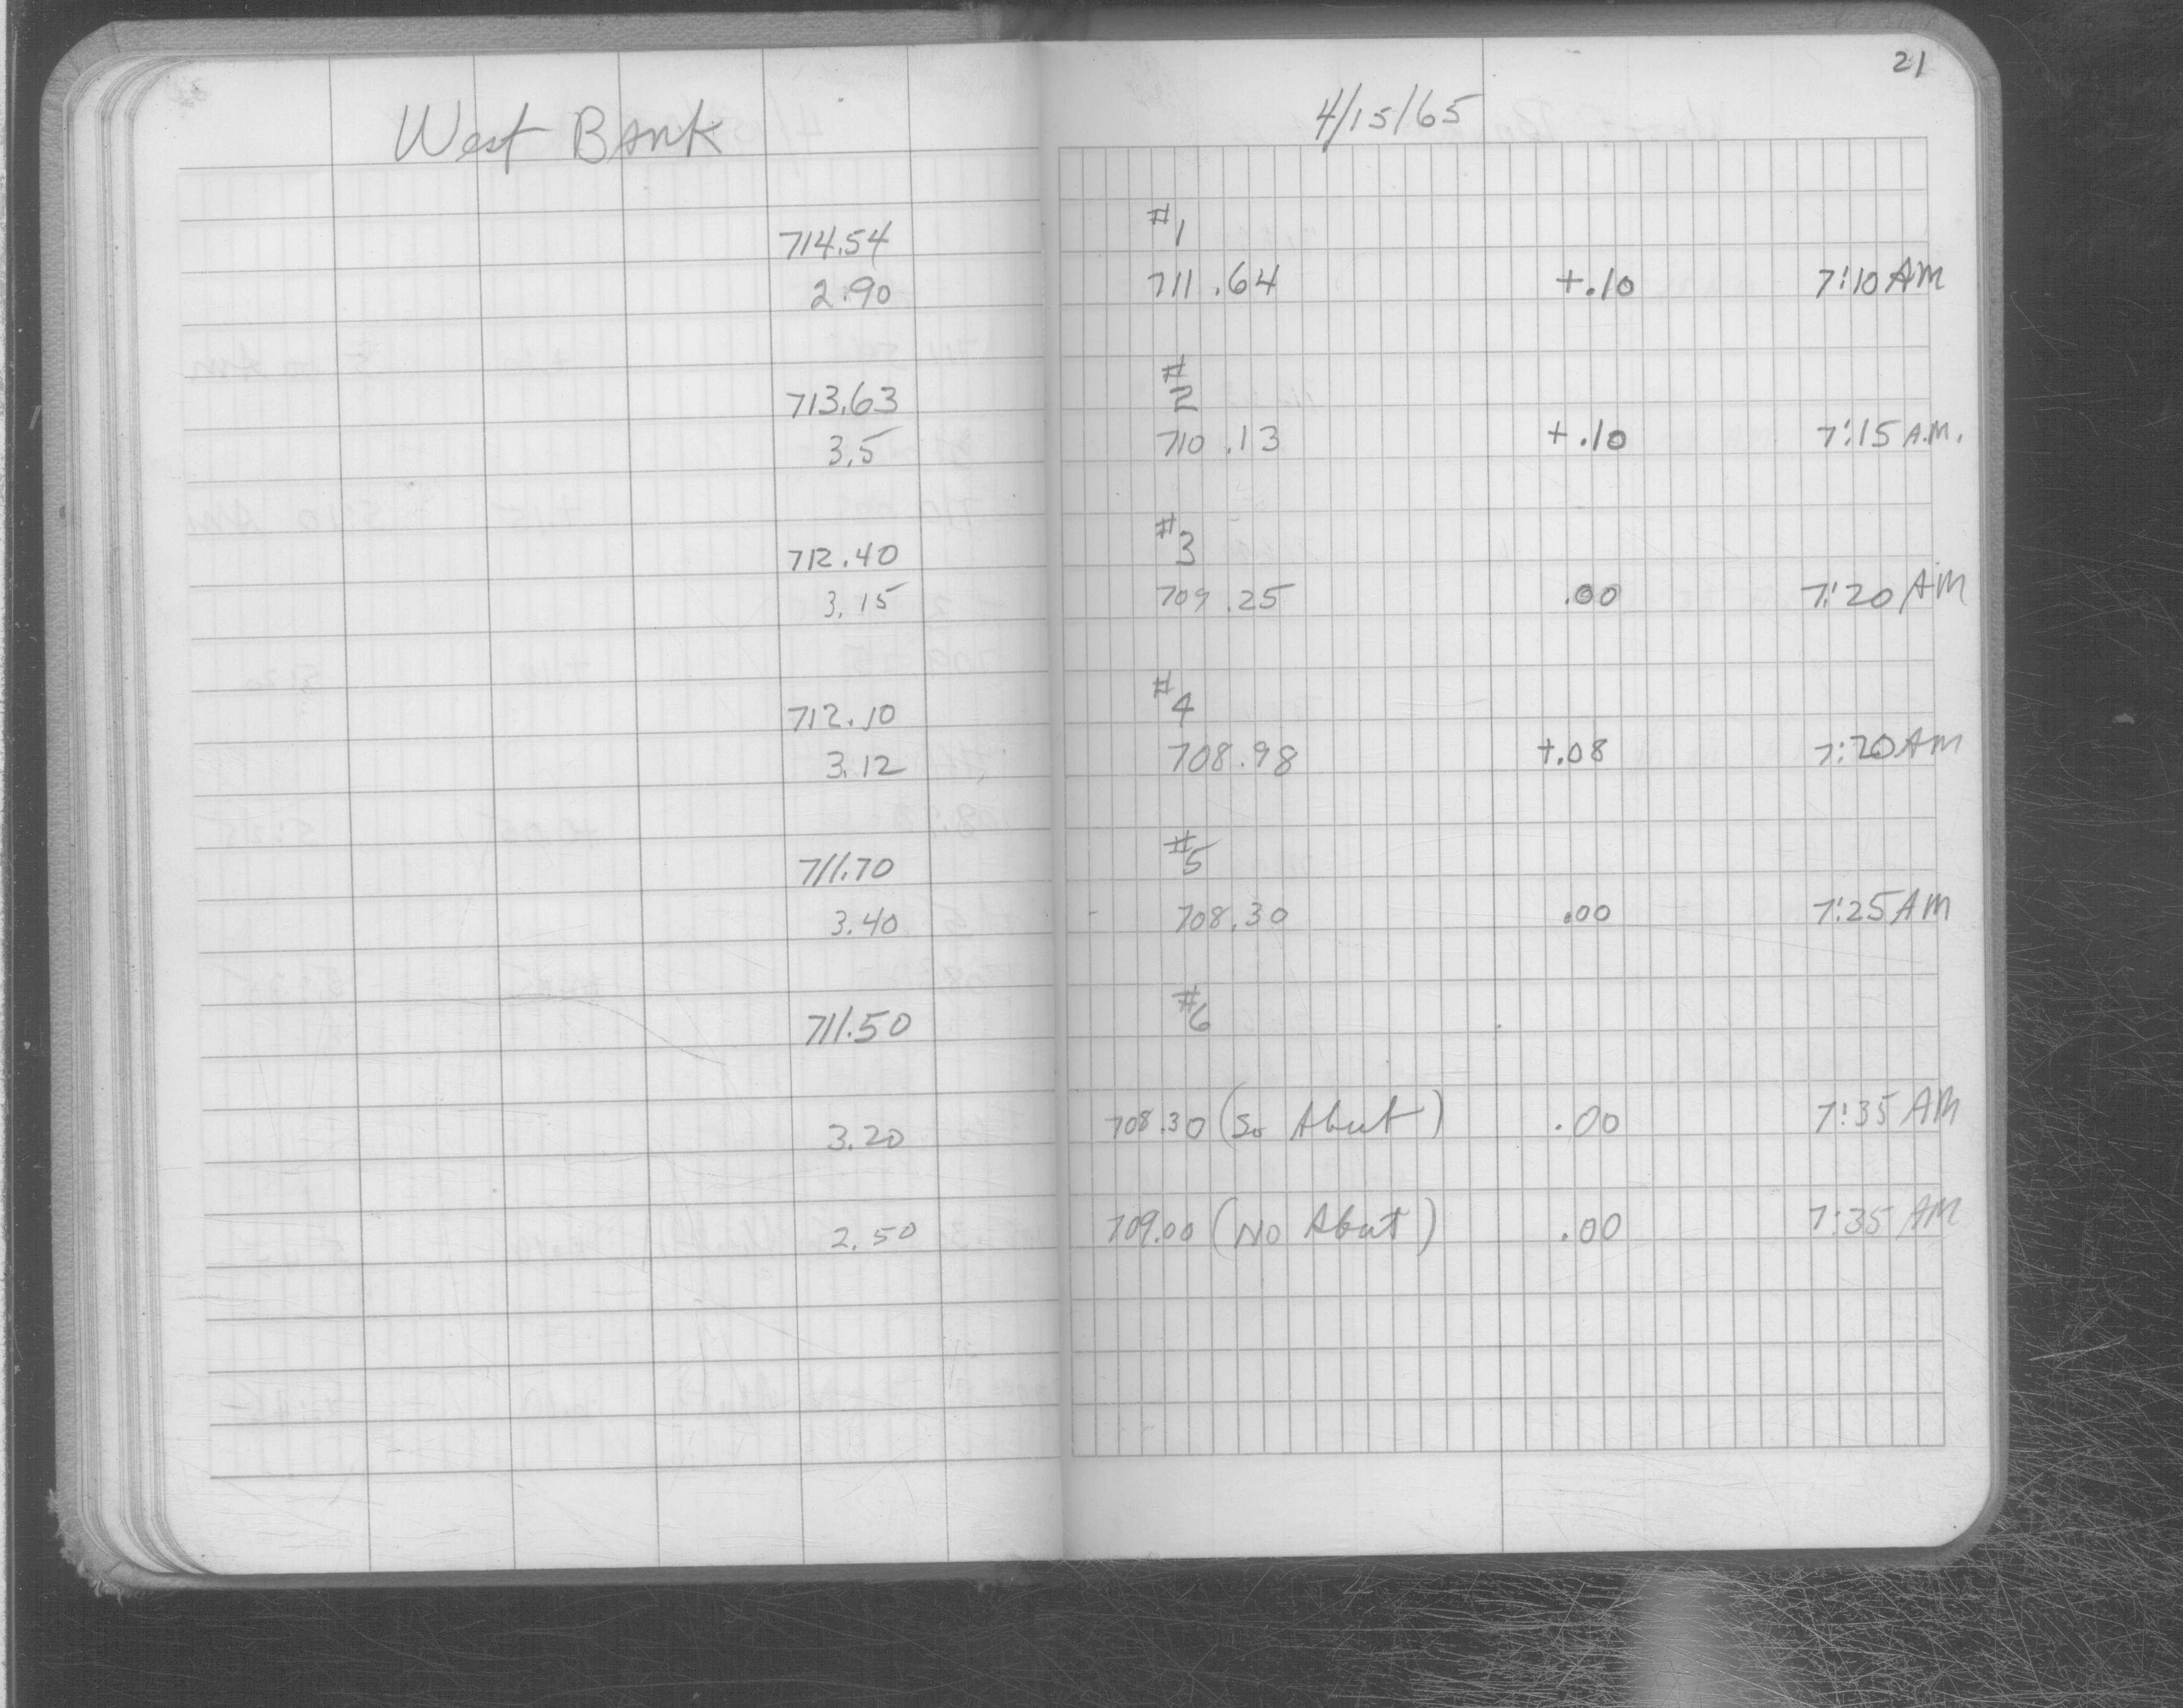 21
West Bank 4/15/65
#1
714.54
2.90 711.64 +.10 7:10 AM
#
713.63 2
3.5 710.13 +.10 7:15 A.M.
712.40 #3
3.15 709.25 .00 7:20 AM
712.10 #4
3.12 708.98 +.08 7:20 AM
711.70 #5
3.40 708.30 .00 7:25 AM
711.50 #6
3.20 708.30 (So Abut) .00 7:35 AM
2.50 709.00 (No Abut) .00 7:35 AM